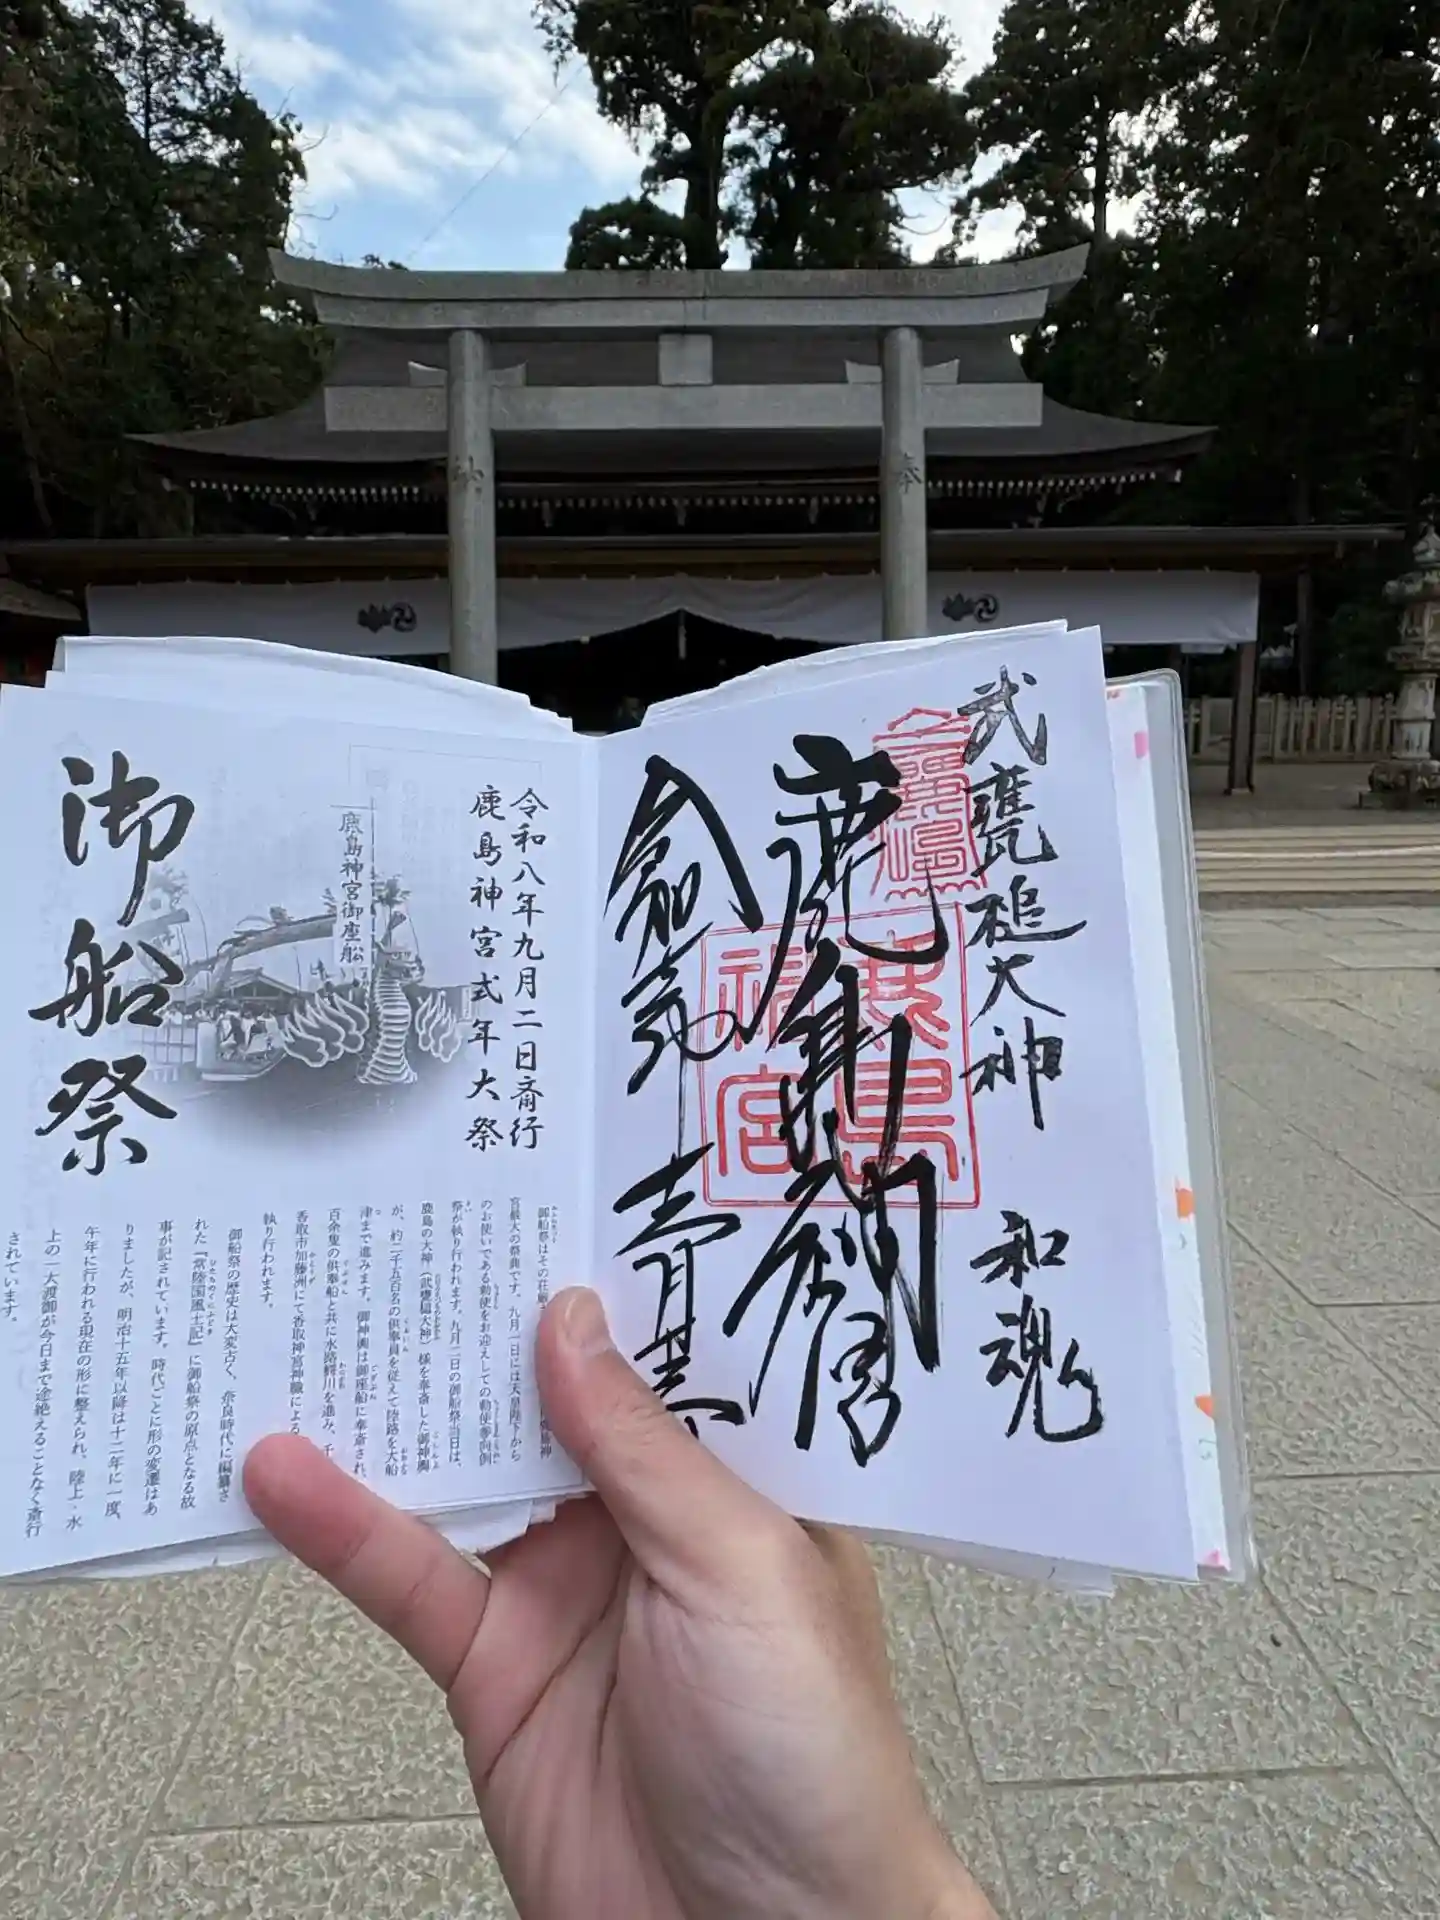 武甕槌大神 和魂
鹿島神宮
鹿島神宮
令和八年九月二日斎行
鹿島神宮式年大祭
鹿島神宮御座船
御船祭
御船祭はその荘厳
宮最大の祭典です。九月一日には天皇陛下から
のお使いである勅使をお迎えしての勅使参向例
祭が執り行われます。九月二日の御船祭当日は、
鹿島の大神(武甕槌大神)様を奉斎した御神輿
が、約二千五百名の供奉員を従えて陸路を大船
津まで進みます。御神輿は御座船に奉斎され、
百余隻の供奉船と共に水路鰐川を進み、千
香取市加藤洲にて香取神宮神職による
執り行われます。
御船祭の歴史は大変古く、奈良時代に編纂さ
れた『常陸国風土記』に御船祭の原点となる故
事が記されています。時代ごとに形の変遷はあ
りましたが、明治十五年以降は十二年に一度、
午年に行われる現在の形に整えられ、陸上・水
上の一大渡御が今日まで途絶えることなく斎行
されています。
奉